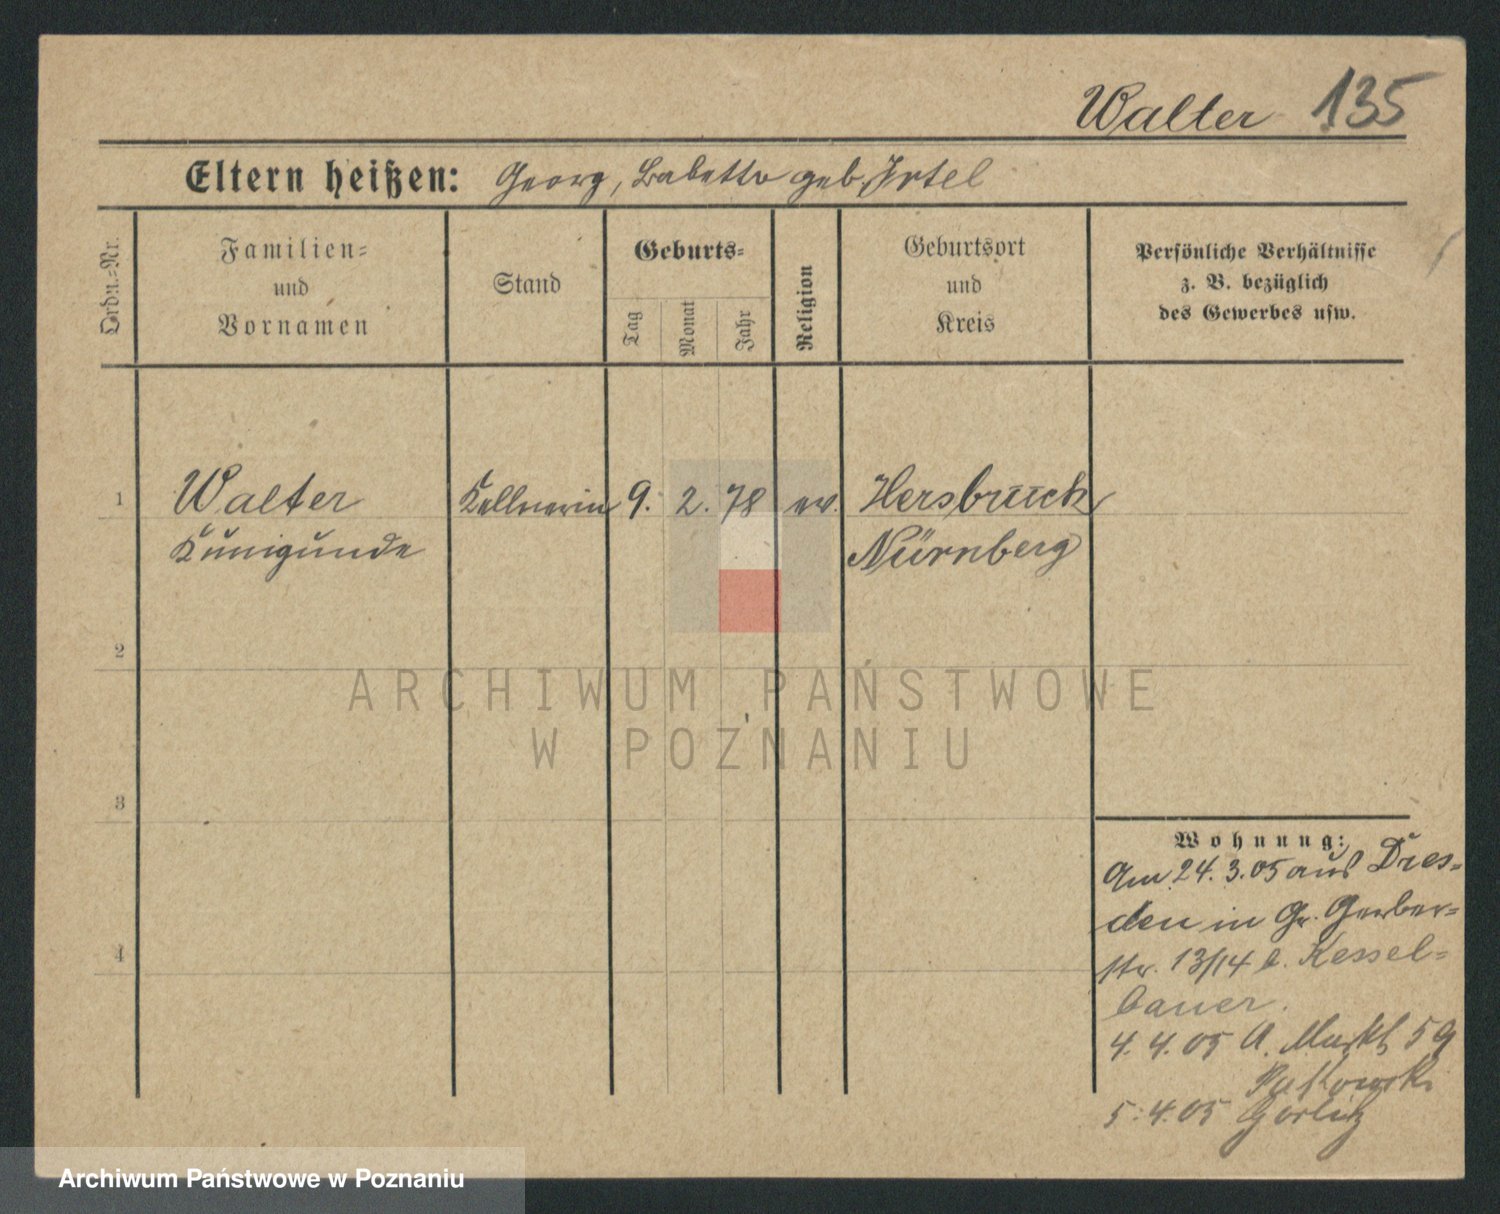 Walter 135
Eltern heißen: Georg, Babette geb. Irtel
Ordn.=Nr.
Familien=
und
Vornamen
Stand
Geburts=
Tag
Monat
Jahr
Religion
Geburtsort
und
Kreis
Persönliche Verhältnisse
z. B. bezüglich
des Gewerbes usw.
1 Walter Kellnerin 9. 2. 78 ev. Hersbruck
Kunigunde Nürnberg
2
ARCHIWUM PAŃSTWOWE
W POZNANIU
3
Wohnung:
Am 24.3.05 aus Dres=
den in Gr. Gerber=
str. 13/14 b. Kessel=
bauer.
4. 4. 05 A. Markt 59
5. 4. 05 Görlitz
4
Archiwum Państwowe w Poznaniu